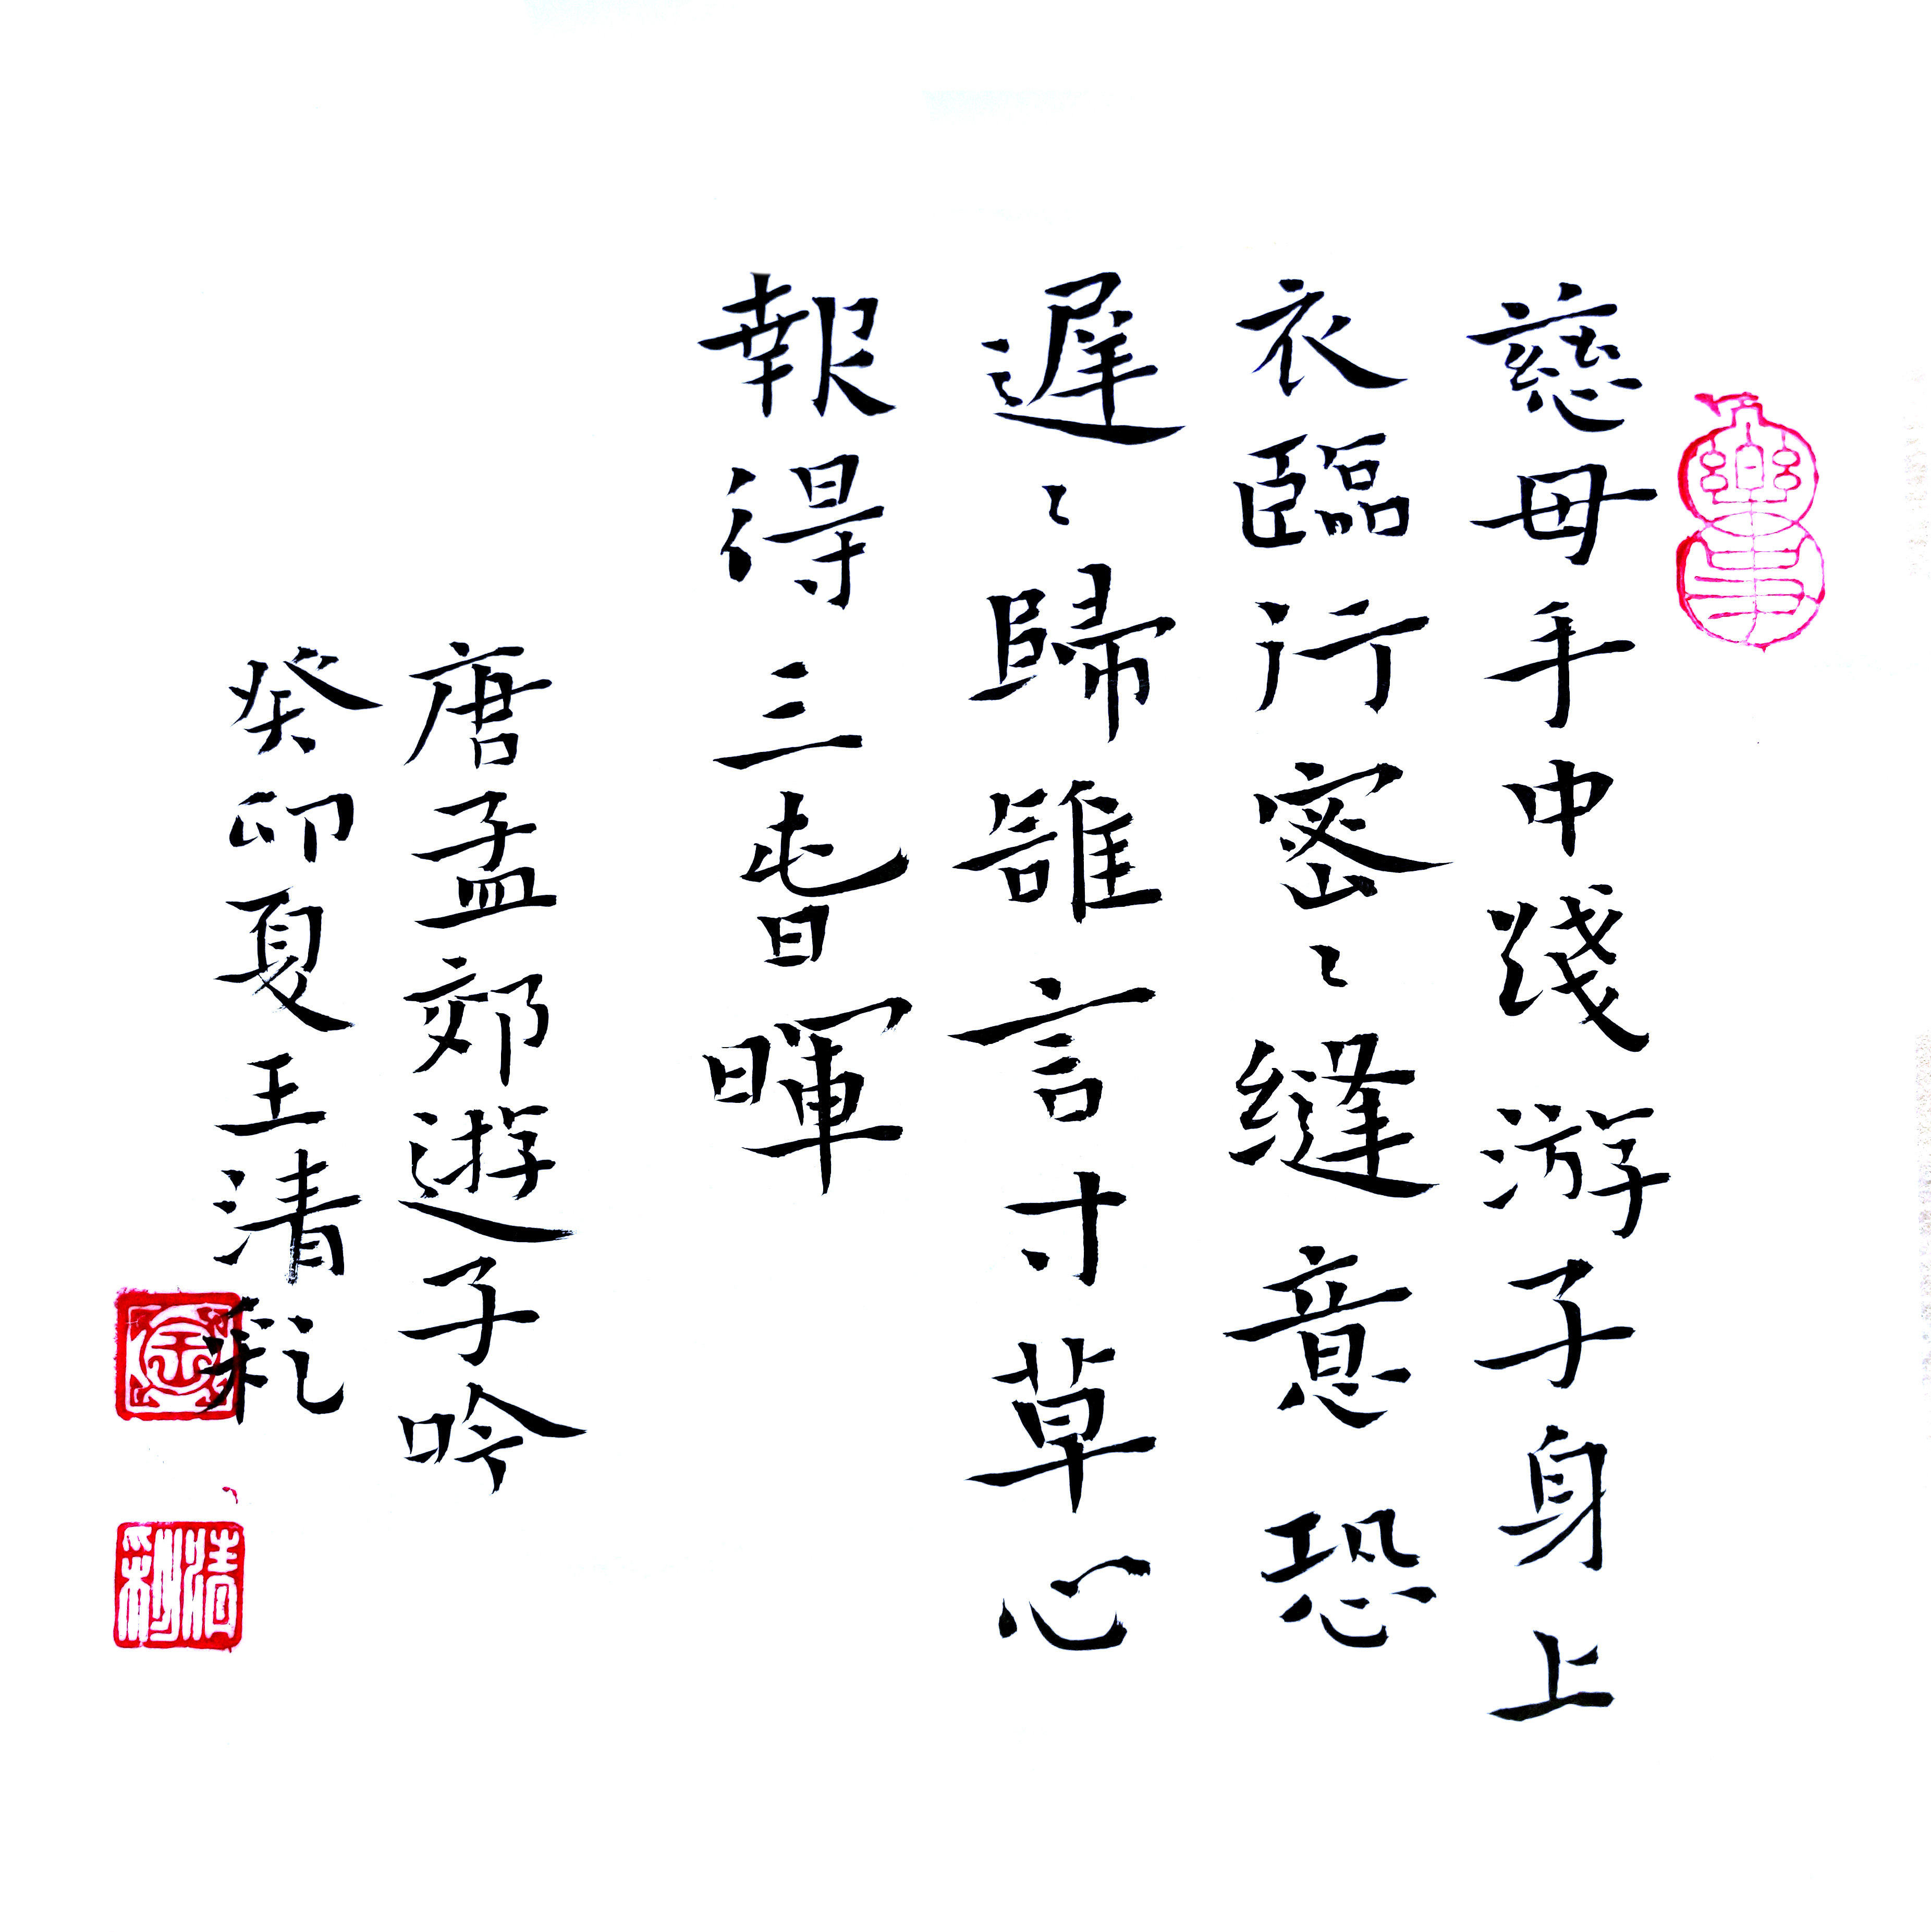 慈母手中线游子身上
衣臨行密〻缝意恐
遲〻歸誰言寸草心
報得三春暉
唐孟郊遊子吟
癸卯夏王清